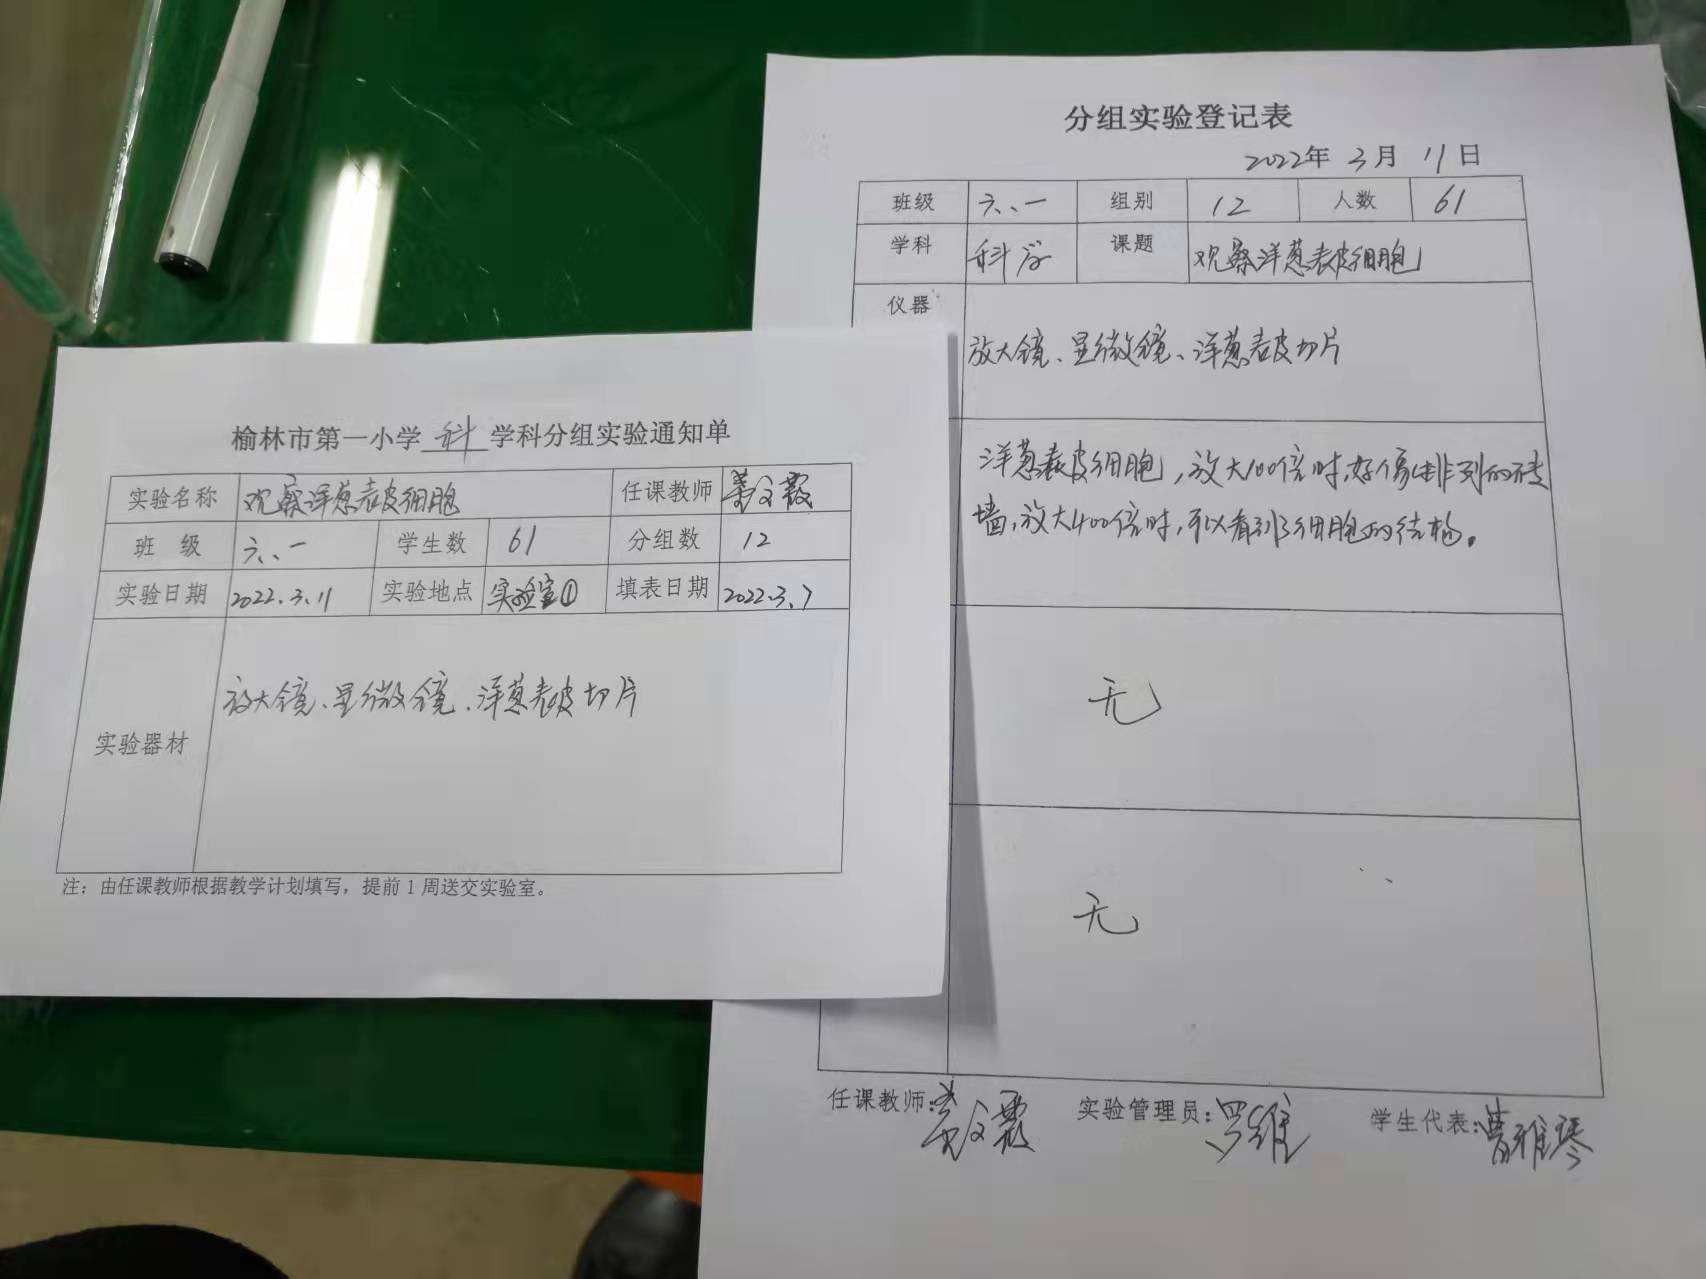 榆林市第一小学 科 学科分组实验通知单
实验名称 观察洋葱表皮细胞 任课教师
班 级 六、一 学生数 61 分组数 12
实验日期 2022.3.11 实验地点 实验室① 填表日期 2022.3.7
实验器材 放大镜、显微镜、洋葱表皮切片
注：由任课教师根据教学计划填写，提前1周送交实验室。
分组实验登记表
2022年 3月 11日
班级 六、一 组别 12 人数 61
学科 科学 课题 观察洋葱表皮细胞
仪器 放大镜、显微镜、洋葱表皮切片
洋葱表皮细胞，放大100倍时，好像排列的砖
墙，放大400倍时，可以看到细胞的结构。
无
无
任课教师： 实验管理员：罗维 学生代表：曹雅琴